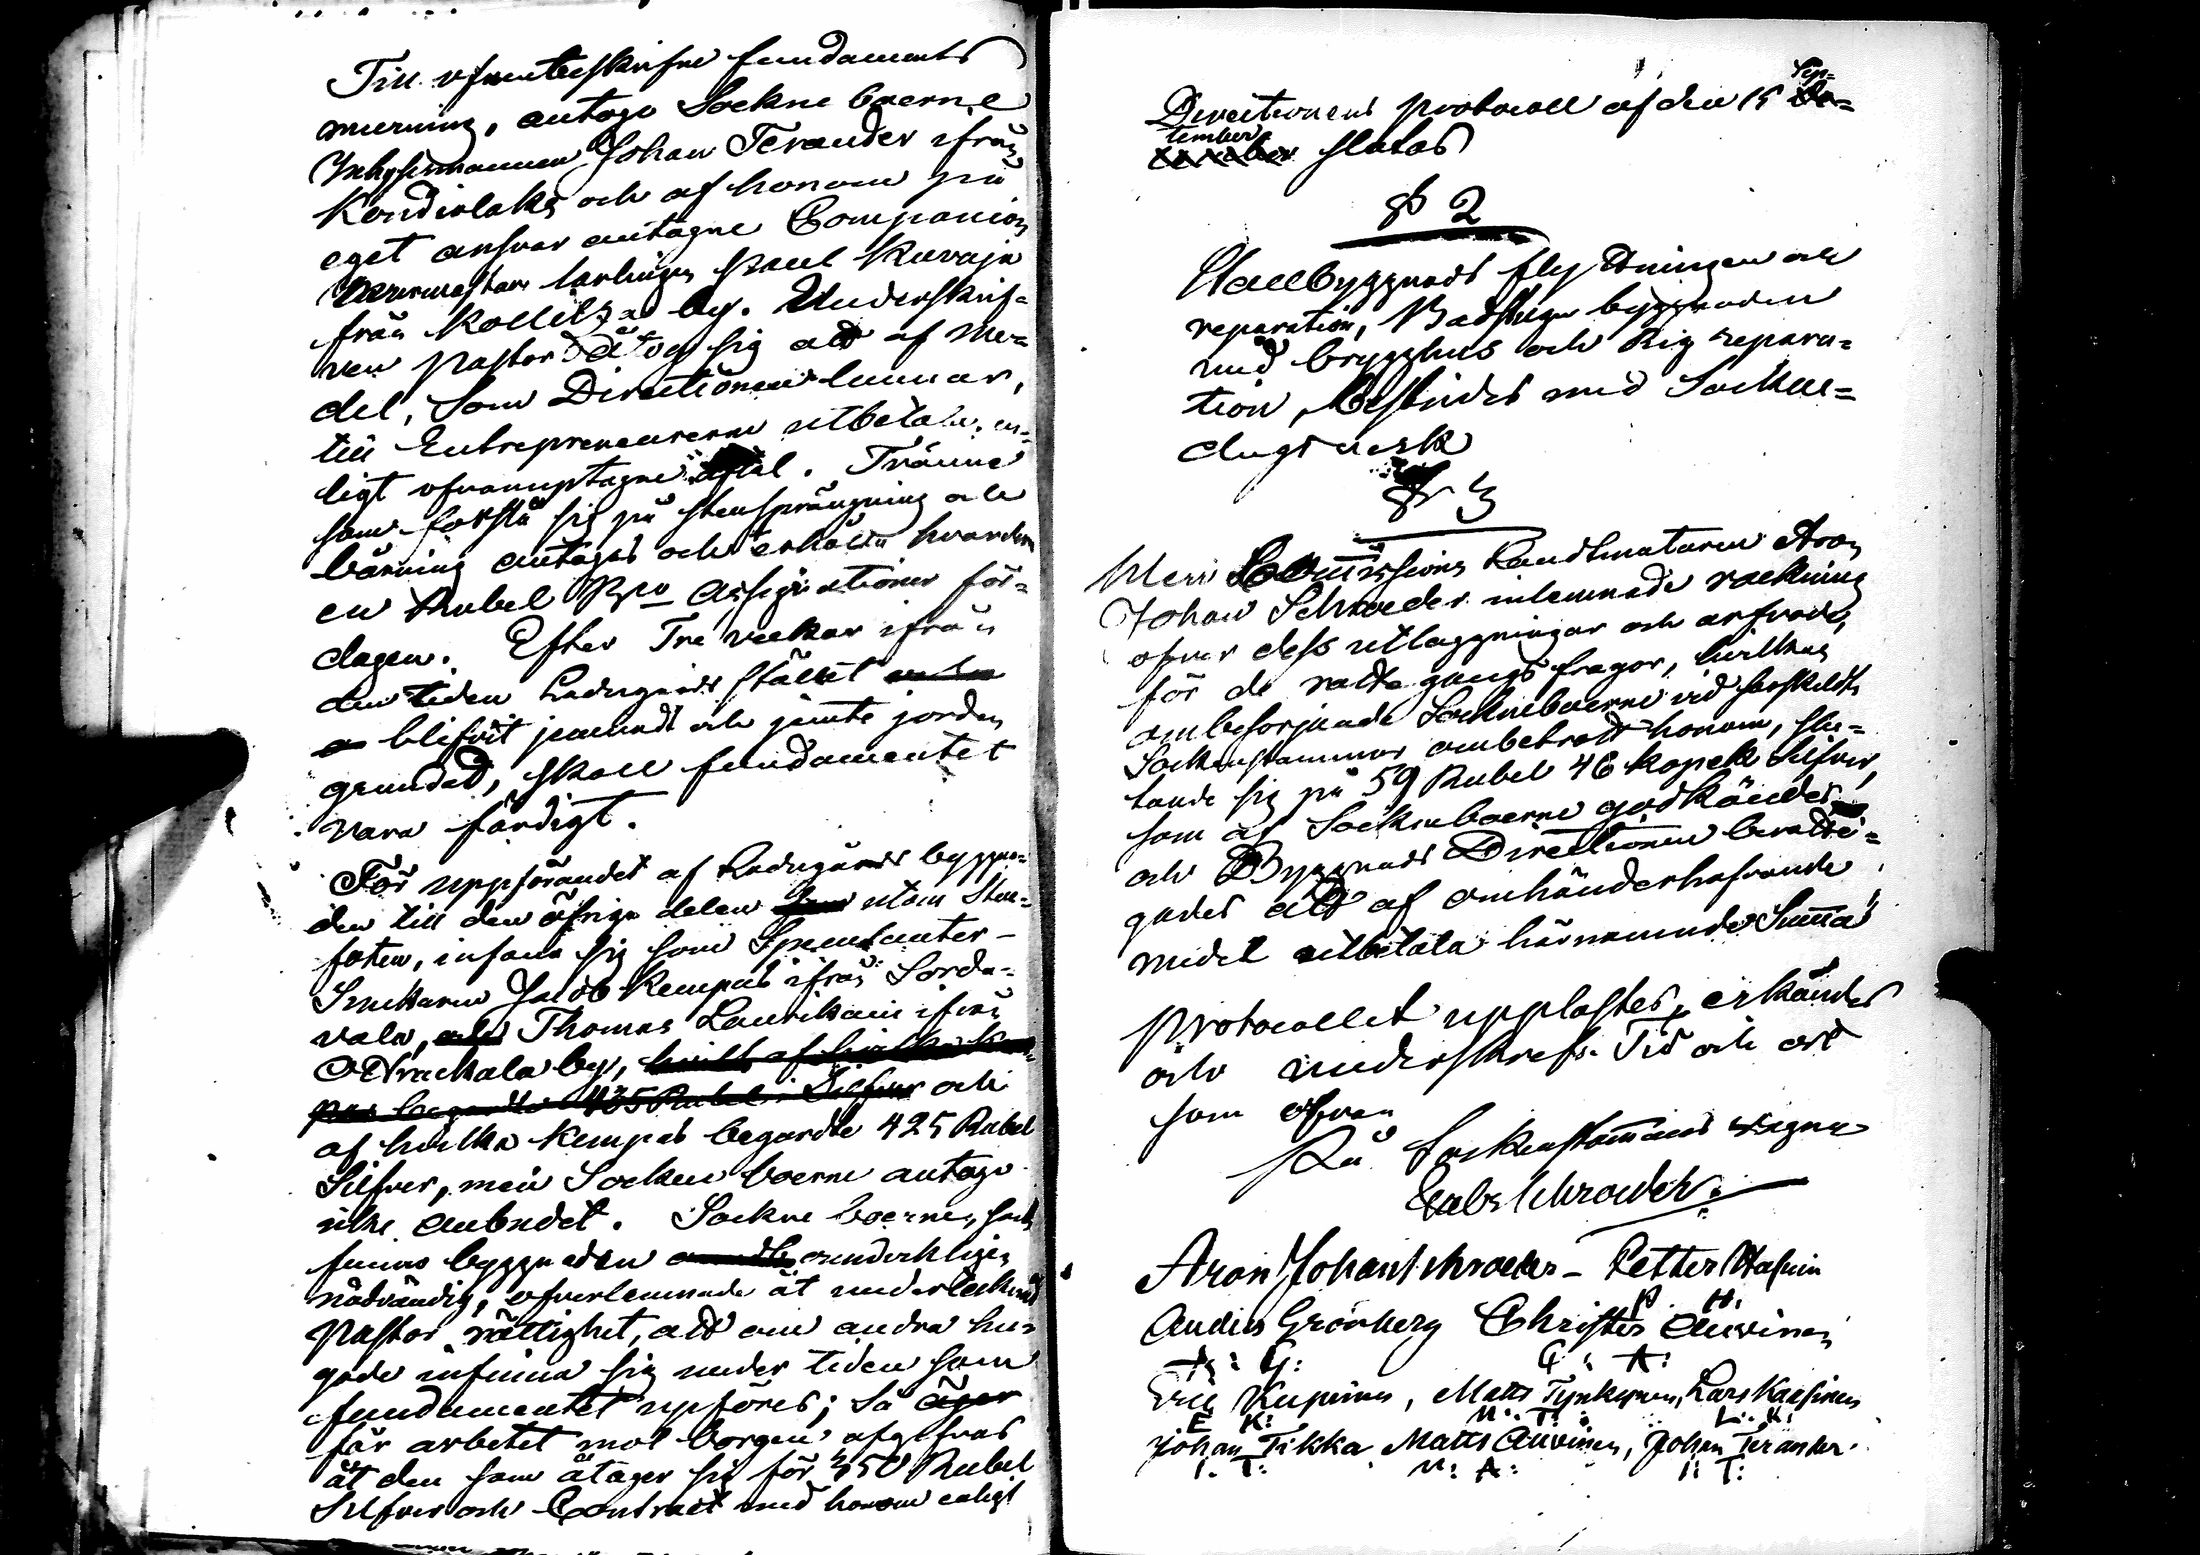 Till ofvanbeskrifne fundaments
murning, antogo Sockne boerne
Inhysesmannen Johan Terander ifrån
Kondiolaks och af honom på
eget ansvar antagne Companion
Murmästare lärlingen Paul Kuvaja
från Kollitza by. Underskrif-
ven Pastor åtog sig att af me-
del, som Directionen lemnar,
till Entrepreneurerne utbetala, en-
ligt ofvanuptagne aftal. Tränne
som förstå sig på stensprängning och
bärning antages och erhålla hvardera
en Rubel Bco Assignationer för
dagen. Efter Tre veckor ifrån
den tiden Ladugårds stället
blifvit jemnadt och jämte jorden
grundad, skall fundamentet
vara färdigt.
För uppförandet af Ladugårds byggna-
den till den öfriga delen utom Sten-
foten, infann sig som Spenlanter
Smeden Jacob Kempas ifrån Sorda-
vala, Thomas Laurikain ifrån
Otrackala by, hvilk af hvilka Kem-
pas begärde 435 Rubel Silfver och
af hvilka Kempas begärde 425 Rubel
Silfver, men Socken boerne antogo
icke anbudet. Sockne boerne, som
funno byggnaden ounderkligen
nödvändig, öfverlemnade åt undertecknad
Pastor rättighet, att om andra hu-
gade infinna sig under tiden som
fundamentet upföres; så äger
får arbetet mot borgen afgifvas
åt den som åtager sig för 350 Rubel
Silfver och Contract med honom enligt
Directionens protocoll af den 15 Sep-
tember slutas
§ 2
Stallbyggnads flyttningen och
reparation, Badstugu byggnaden
med brygghus och Rig repara-
tion, bestrides med Sockne-
dagsverk
§ 3
Herr Commissions Landtmätaren Aron
Johan Schroeder inlemnade räckning
öfver dess utläggningar och arfvode,
för de rätte gångs frågor, hvilkas
ombesörjande Socknebоerne vid särskildte
Sockenstämmor ombetrodt honom, slu-
tande sig på 59 Rubel 46 kopek Silfver,
som af Sockneboerne godkändes
och Byggnads Directionen berätti-
gades att af omhänderhafvande
medel utbetala härnämnde Summa
Protocollet upplästes, erkändes
och underskrefs. Tid och ort
som ofvan
På Sockenstämmans vägnar
Gabr Schroeder
Aron Johan Schroeder – Petter Hafvin
P. H.
Anders Grönberg Christer Auvinen
A: G: C: A:
Eric Kupinen, Matts Tynkynen, Lars Kaasinen
E K: M: T: L: K:
Johan Tikka Matts Auvinen, Johan Terander.
I. T: M: A: I: T: